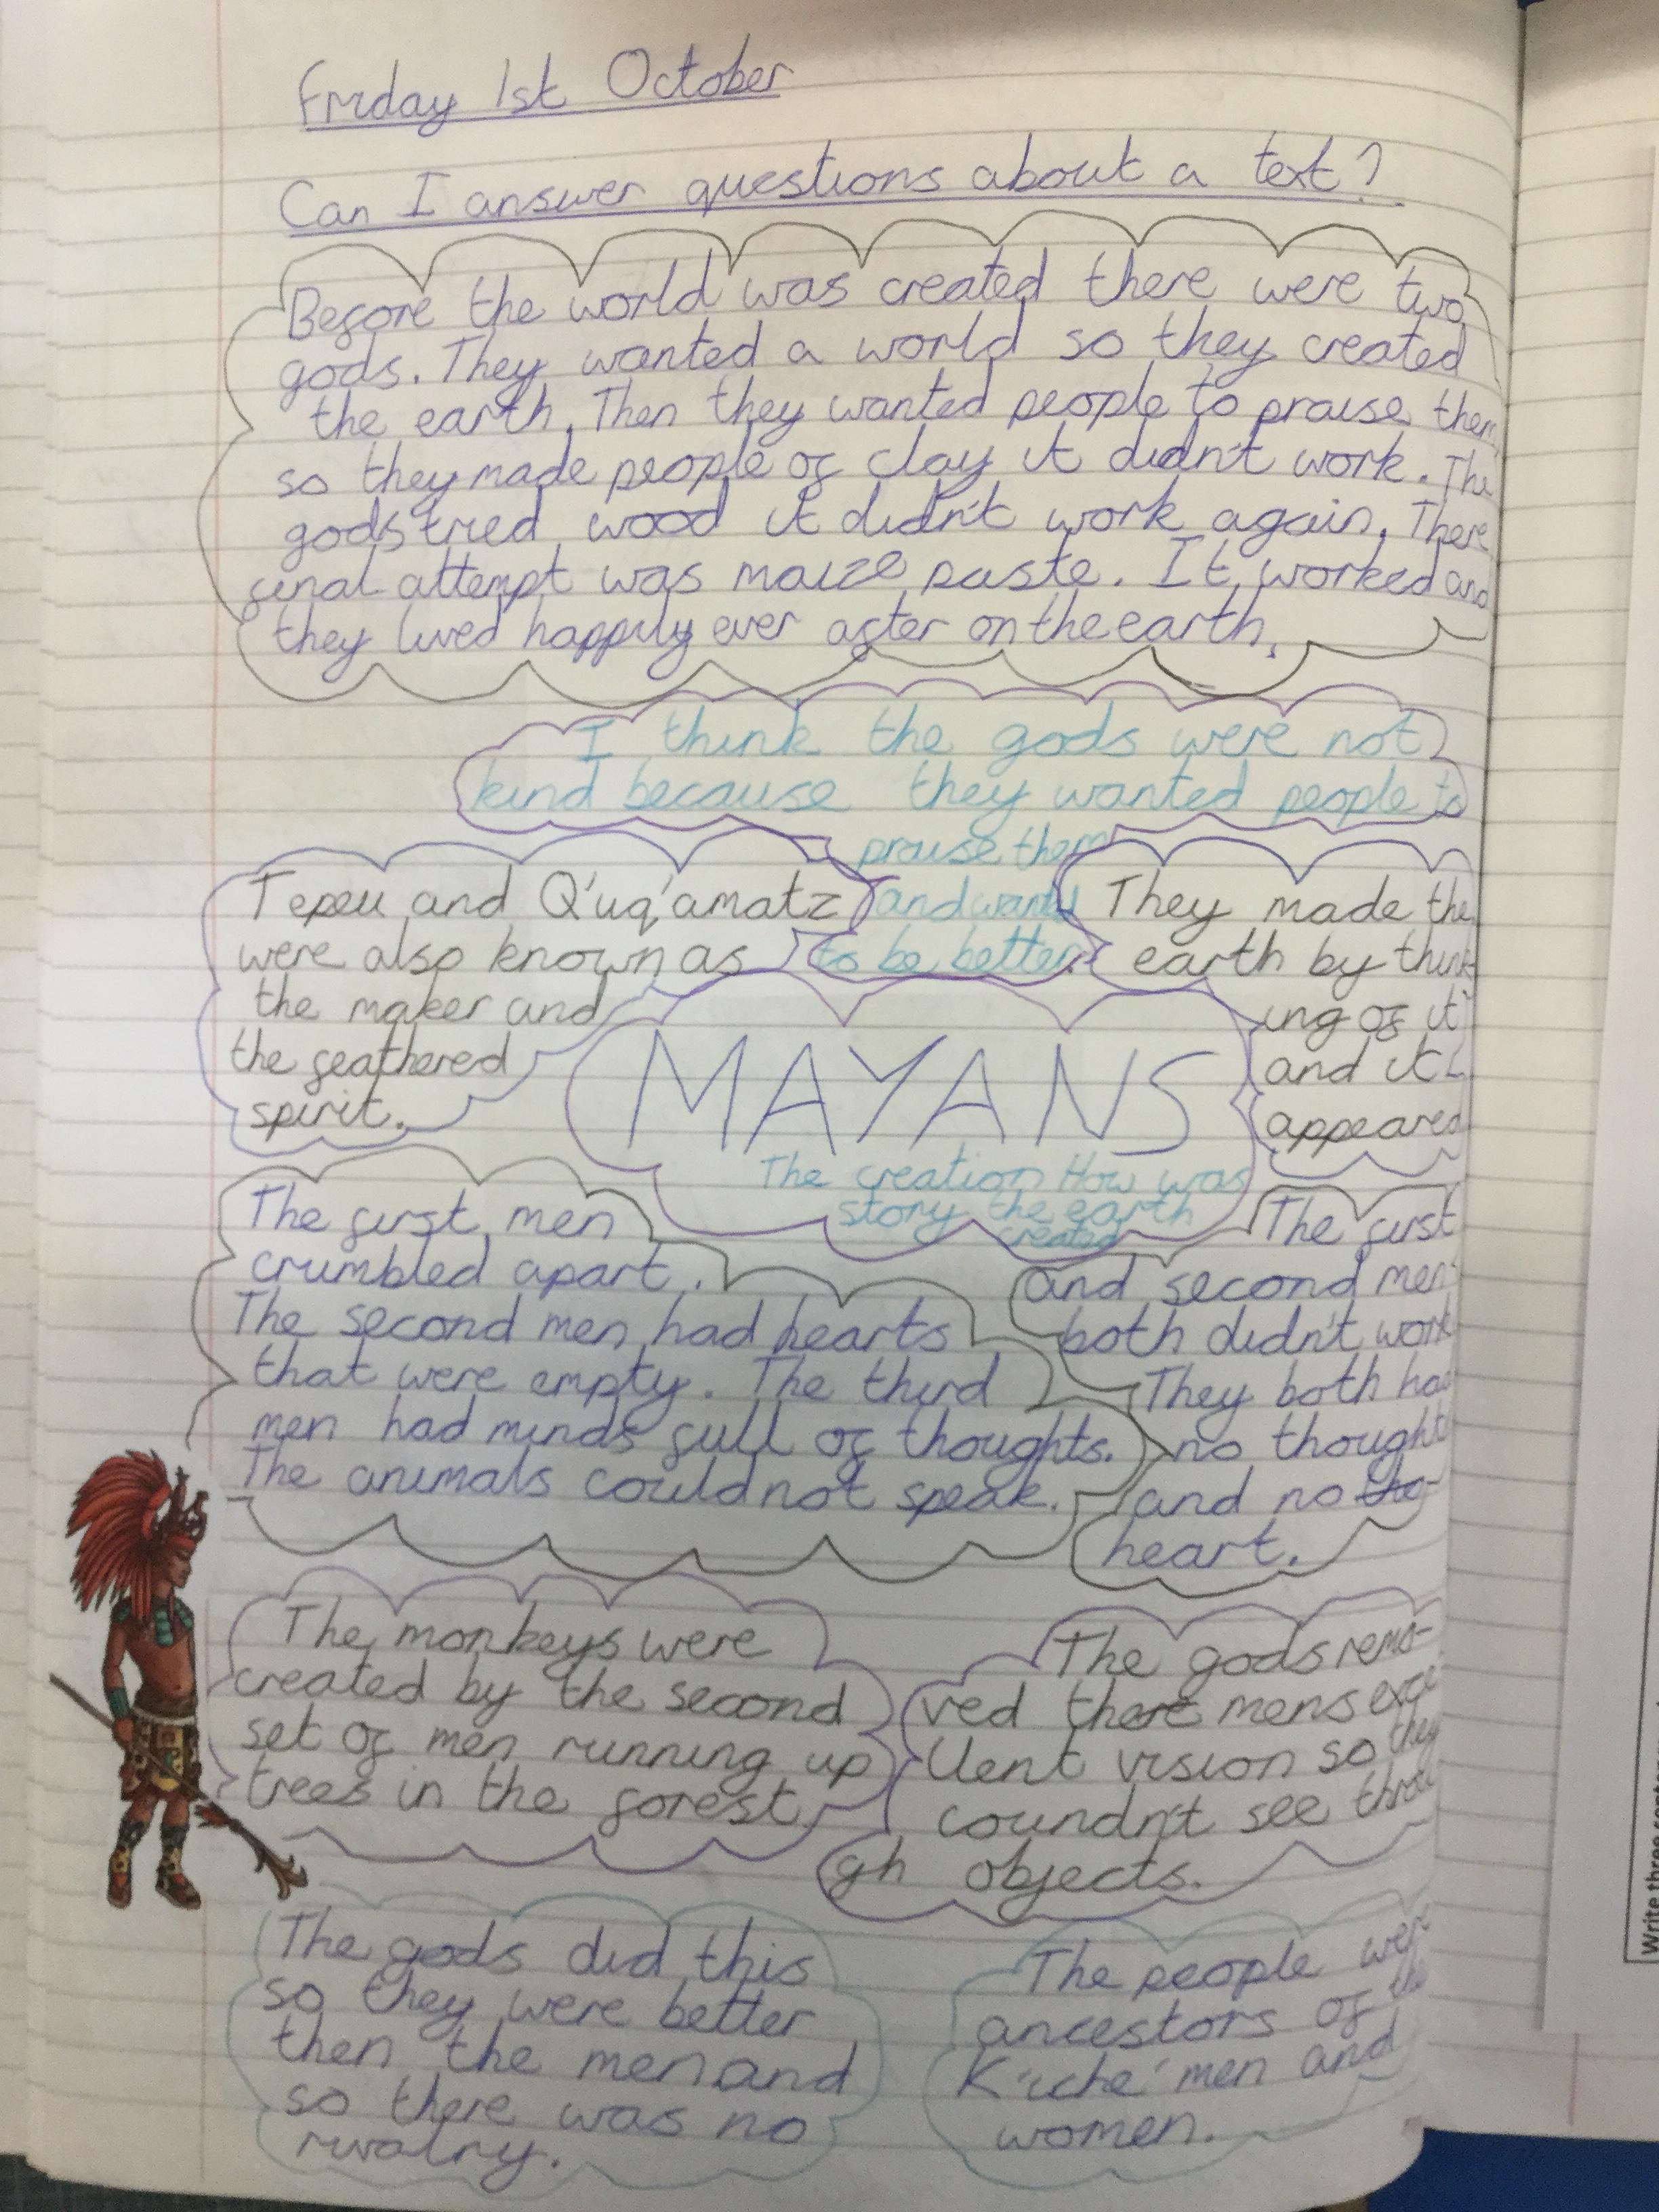 Friday 1st October
Can I answer questions about a text?
Before the world was created there were two
gods. They wanted a world so they created
the earth. Then they wanted people to praise them
so they made people of clay it didn't work. The
gods tried wood it didn't work again. There
final attempt was maize paste. It worked and
they lived happily ever after on the earth.
I think the gods were not
kind because they wanted people to
praise them
and wanted
to be better.
Tepeu and Q'uq'amatz
were also known as
the maker and
the feathered
spirit.
They made the
earth by think-
ing of it
and it
appeared
MAYANS
The creation
story
How was
the earth
created
The first men
crumbled apart.
The second men had hearts
that were empty. The third
men had minds full of thoughts.
The animals could not speak.
The first
and second men
both didn't work
They both had
no thought
and no tho-
heart.
The monkeys were
created by the second
set of men running up
trees in the forest.
The gods remo-
ved there mens exce
llent vision so they
coundn't see throu
gh objects.
The gods did this
so they were better
then the men and
so there was no
rivalry.
The people were
ancestors of the
K'iche' men and
women.
Write three